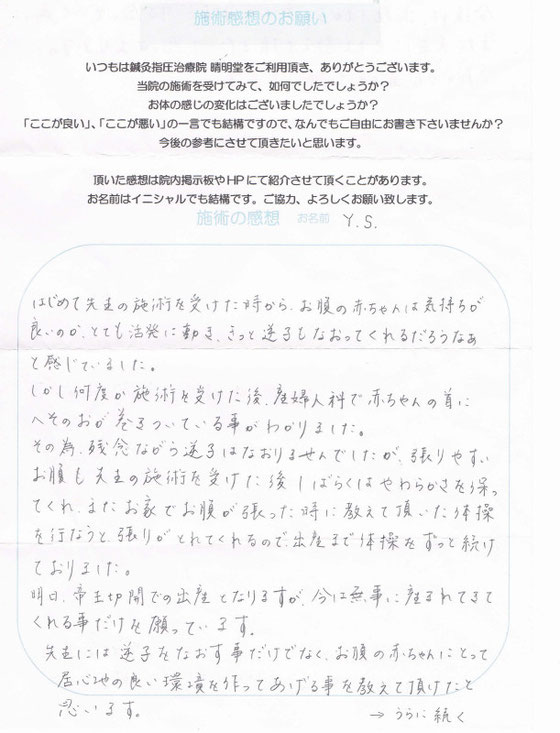 施術感想のお願い
いつもは鍼灸指圧治療院 晴明堂をご利用頂き、ありがとうございます。
当院の施術を受けてみて、如何でしたでしょうか？
お体の感じの変化はございましたでしょうか？
「ここが良い」、「ここが悪い」の一言でも結構ですので、なんでもご自由にお書き下さいませんか？
今後の参考にさせて頂きたいと思います。
頂いた感想は院内掲示板やHPにて紹介させて頂くことがあります。
お名前はイニシャルでも結構です。ご協力、よろしくお願い致します。
施術の感想 お名前 Y.S.
はじめて先生の施術を受けた時から、お腹の赤ちゃんは気持ちが
良いのか、とても活発に動き、きっと逆子もなおってくれるだろうなぁ
と感じていました。
しかし何度か施術を受けた後、産婦人科で赤ちゃんの首に
へそのおが巻きついている事がわかりました。
その為、残念ながら逆子はなおりませんでしたが、張りやすい
お腹も先生の施術を受けた後しばらくはやわらかさを保っ
てくれ、またお家でお腹が張った時に教えて頂いた体操
を行なうと、張りがとれてくれるので、出産まで体操をずっと続け
ておりました。
明日、帝王切開での出産となりますが、今は無事に産まれてきて
くれる事だけを願っています。
先生には逆子をなおす事だけでなく、お腹の赤ちゃんにとって
居心地の良い環境を作ってあげる事を教えて頂けたと
思います。
→ うらに続く